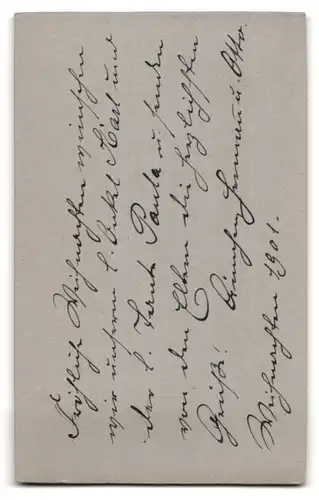 Fröhliche Weihnachten wünschen
wir unserm l. Onkel Karl und
der l. Tante Paula u. senden
von den Eltern die herzlichsten
Grüße! Hannen u. Otto.
Weihnachten 1901.